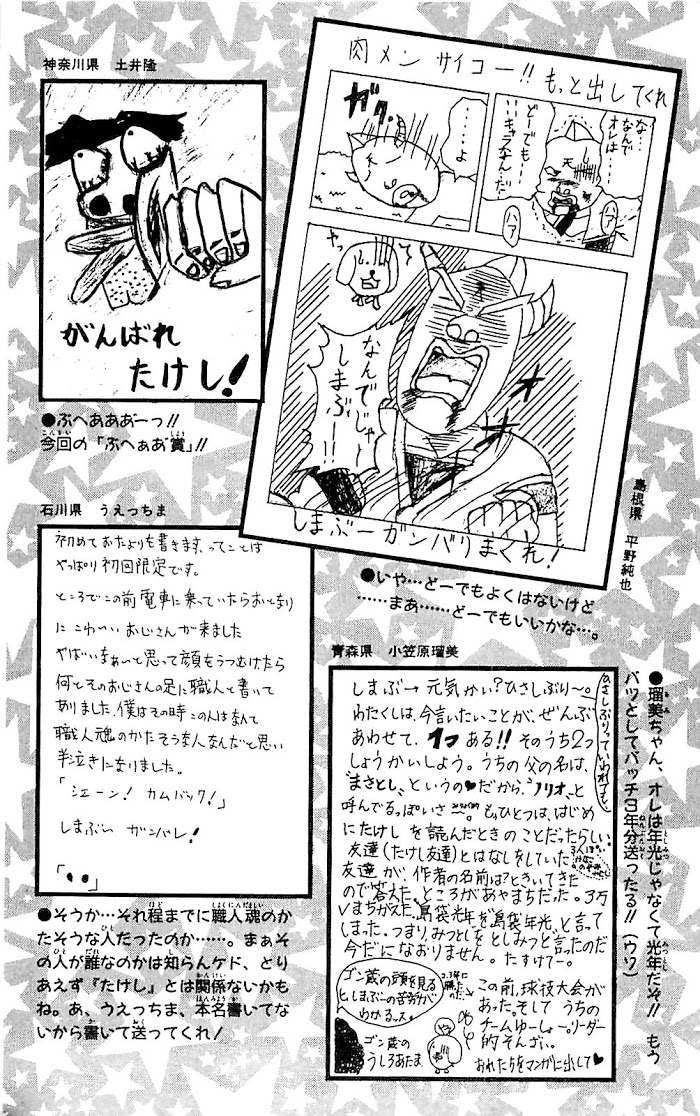 神奈川県　土井隆
がんばれ
たけし!
●ぶへあああーっ!!
今回の「ぶへぁぁ賞」!!
肉メン サイコー!! もっと出してくれ
な…
なんで
オレは
どーでも
いいキャラなんだ…
ハァ
ハァ
……よ
ガク.
なんでじゃー
しまぶ…!!
しまぶーガンバりまくれ!
島根県　平野純也
●いや…どーでもよくはないけど
……まあ……どーでもいいかな…。
石川県　うえっちま
初めておたよりを書きます、ってことは
やっぱり初回限定です。
ところでこの前電車に乗っていたらおとなり
にこわーいおじさんが来ました
やばいなぁ〜と思って顔をうつむけたら
何とそのおじさんの足に職人と書いて
ありました。僕はその時この人はなんて
職人魂のかたそうな人なんだと思い
半泣きになりました。
「シェーン! カムバック!」
しまぶー ガンバレ!
●そうか…それ程までに職人魂のか
たそうな人だったのか……。まぁそ
の人が誰なのかは知らんケド、とり
あえず『たけし』とは関係ないかも
ね。あ、うえっちま、本名書いてな
いから書いて送ってくれ!
青森県　小笠原瑠美
しまぶー 元気かい?ひさしぶり〜。
ひさしぶりっていわれても、
わたくしは、今言いたいことが、ぜんぶ
あわせて、1つある!! そのうち2つ
しょうかいしよう。うちの父の名は、
"まさとし、というの♥だから、"ノリオ、と
呼んでる。っぽいさ〜。もひとつは、はじめ
にたけしを読んだときのことだったらしい。
友達(たけし友達)とはなしをしていた
友達が、作者の名前は?ときいてきた
ので答えた。ところがあやまちだった。3万
まちがえた。島袋光年を島袋年光と言って
しまった。つまり、みつとしをとしみつと言ったのだ
今だになおりません。たすけてー。
ゴン蔵の頭を見る
としまぶーの苦労が
わかるッス。
ゴン蔵の
うしろあたま
この前、球技大会が
あった。そして うちの
チームゆーしょー。リーダー
的そんざい。
おれたちをマンガに出して♥
●瑠美ちゃん、オレは年光じゃなくて光年だぞ!! もう
バッとしてバッチ3年分送ったる!!(ウソ)